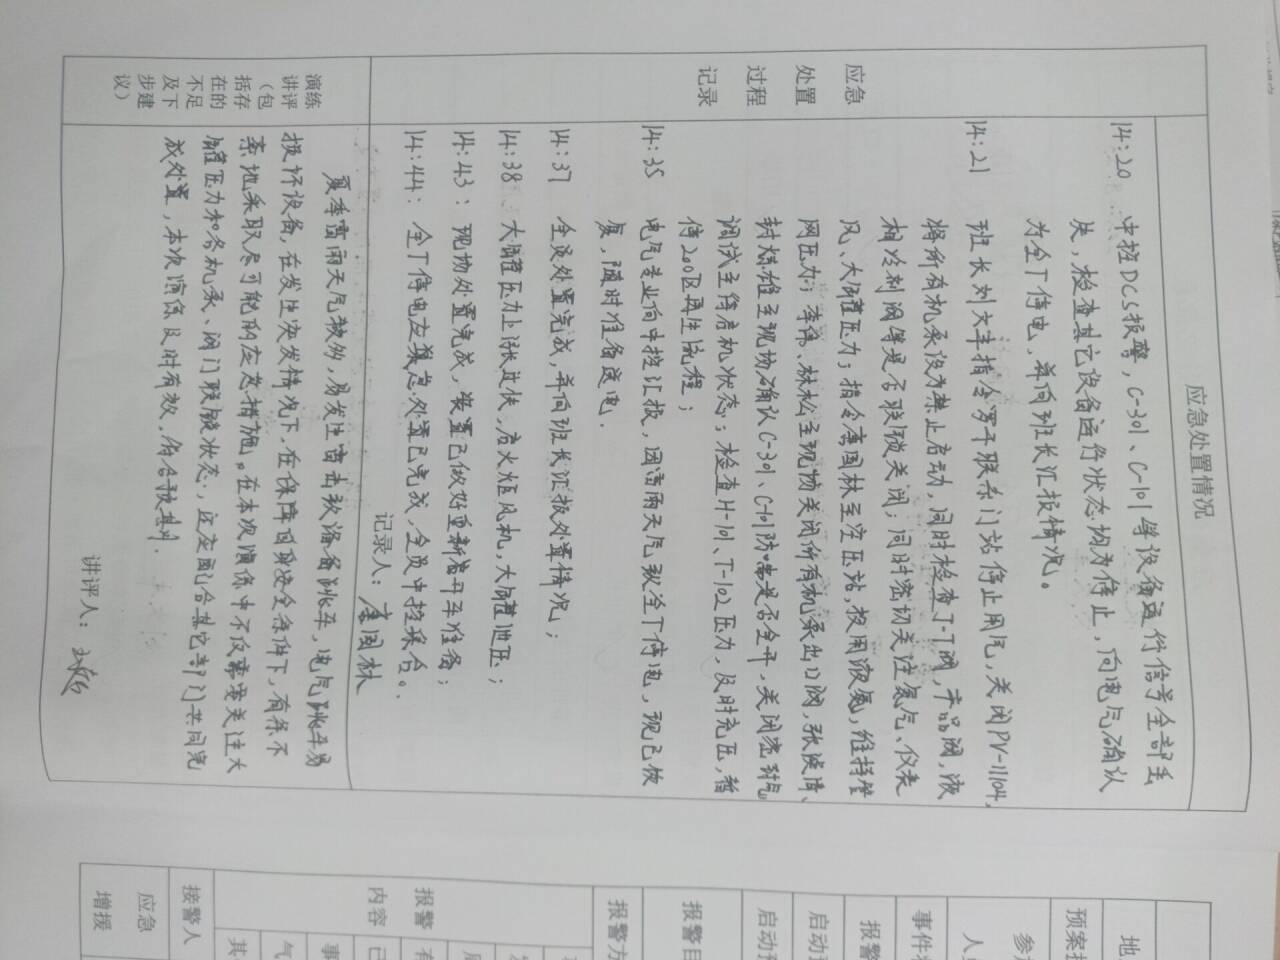 应急处置情况
应急
处置
过程
记录
14:20 中控DCS报警，C-301、C-101等设备运行信号全部丢
失，检查其它设备运行状态均为停止，向电气确认
为全厂停电，并向班长汇报情况。
14:21 班长刘大丰指令罗平联系门站停止用气，关闭PV-11104，
将所有机泵设为禁止启动，同时检查J-T阀，产品阀，液
相冷剂阀等是否联锁关闭，同时密切关注氮气、仪表
风、大罐压力；指令唐国林至空压站，投用液氮，维持管
网压力；李伟、林松至现场关闭所有机泵出口阀，张
封 至现场确认C-301、C-101防喘是否全开，关闭密封气
调试至待启机状态；检查H-101、T-102压力，及时充压，暂
停200区再生流程；
14:35 电气专业向中控汇报，因雷雨天气致全厂停电，现已恢
复，随时准备送电。
14:37 全员处置完成，并向班长汇报处置情况；
14:38 大罐压力上涨过快，启火炬风机，大罐泄压；
14:43：现场处置完成，装置已做好重新启开车准备；
14:44：全厂停电应急处置已完成，全员中控集合。
记录人：唐国林
演练
讲评
（包
括存
在的
不足
及下
步建
议）
夏季雷雨天气较多，易发生雷击致设备跳车，电气跳车易
损坏设备，在发生突发情况下，在保障自身安全条件下，有条不
紊地采取尽可能的应急措施。在本次演练中不仅需要关注大
罐压力和各机泵、阀门联锁状态，还应配合其它部门共同完
成处置，本次演练及时有效，符合预期。
讲评人：
地
预案
参
人
事件
报警
启动
启动
报警目
报警方
报警
内容
有
已
事
气
其
接警人
应急
增援